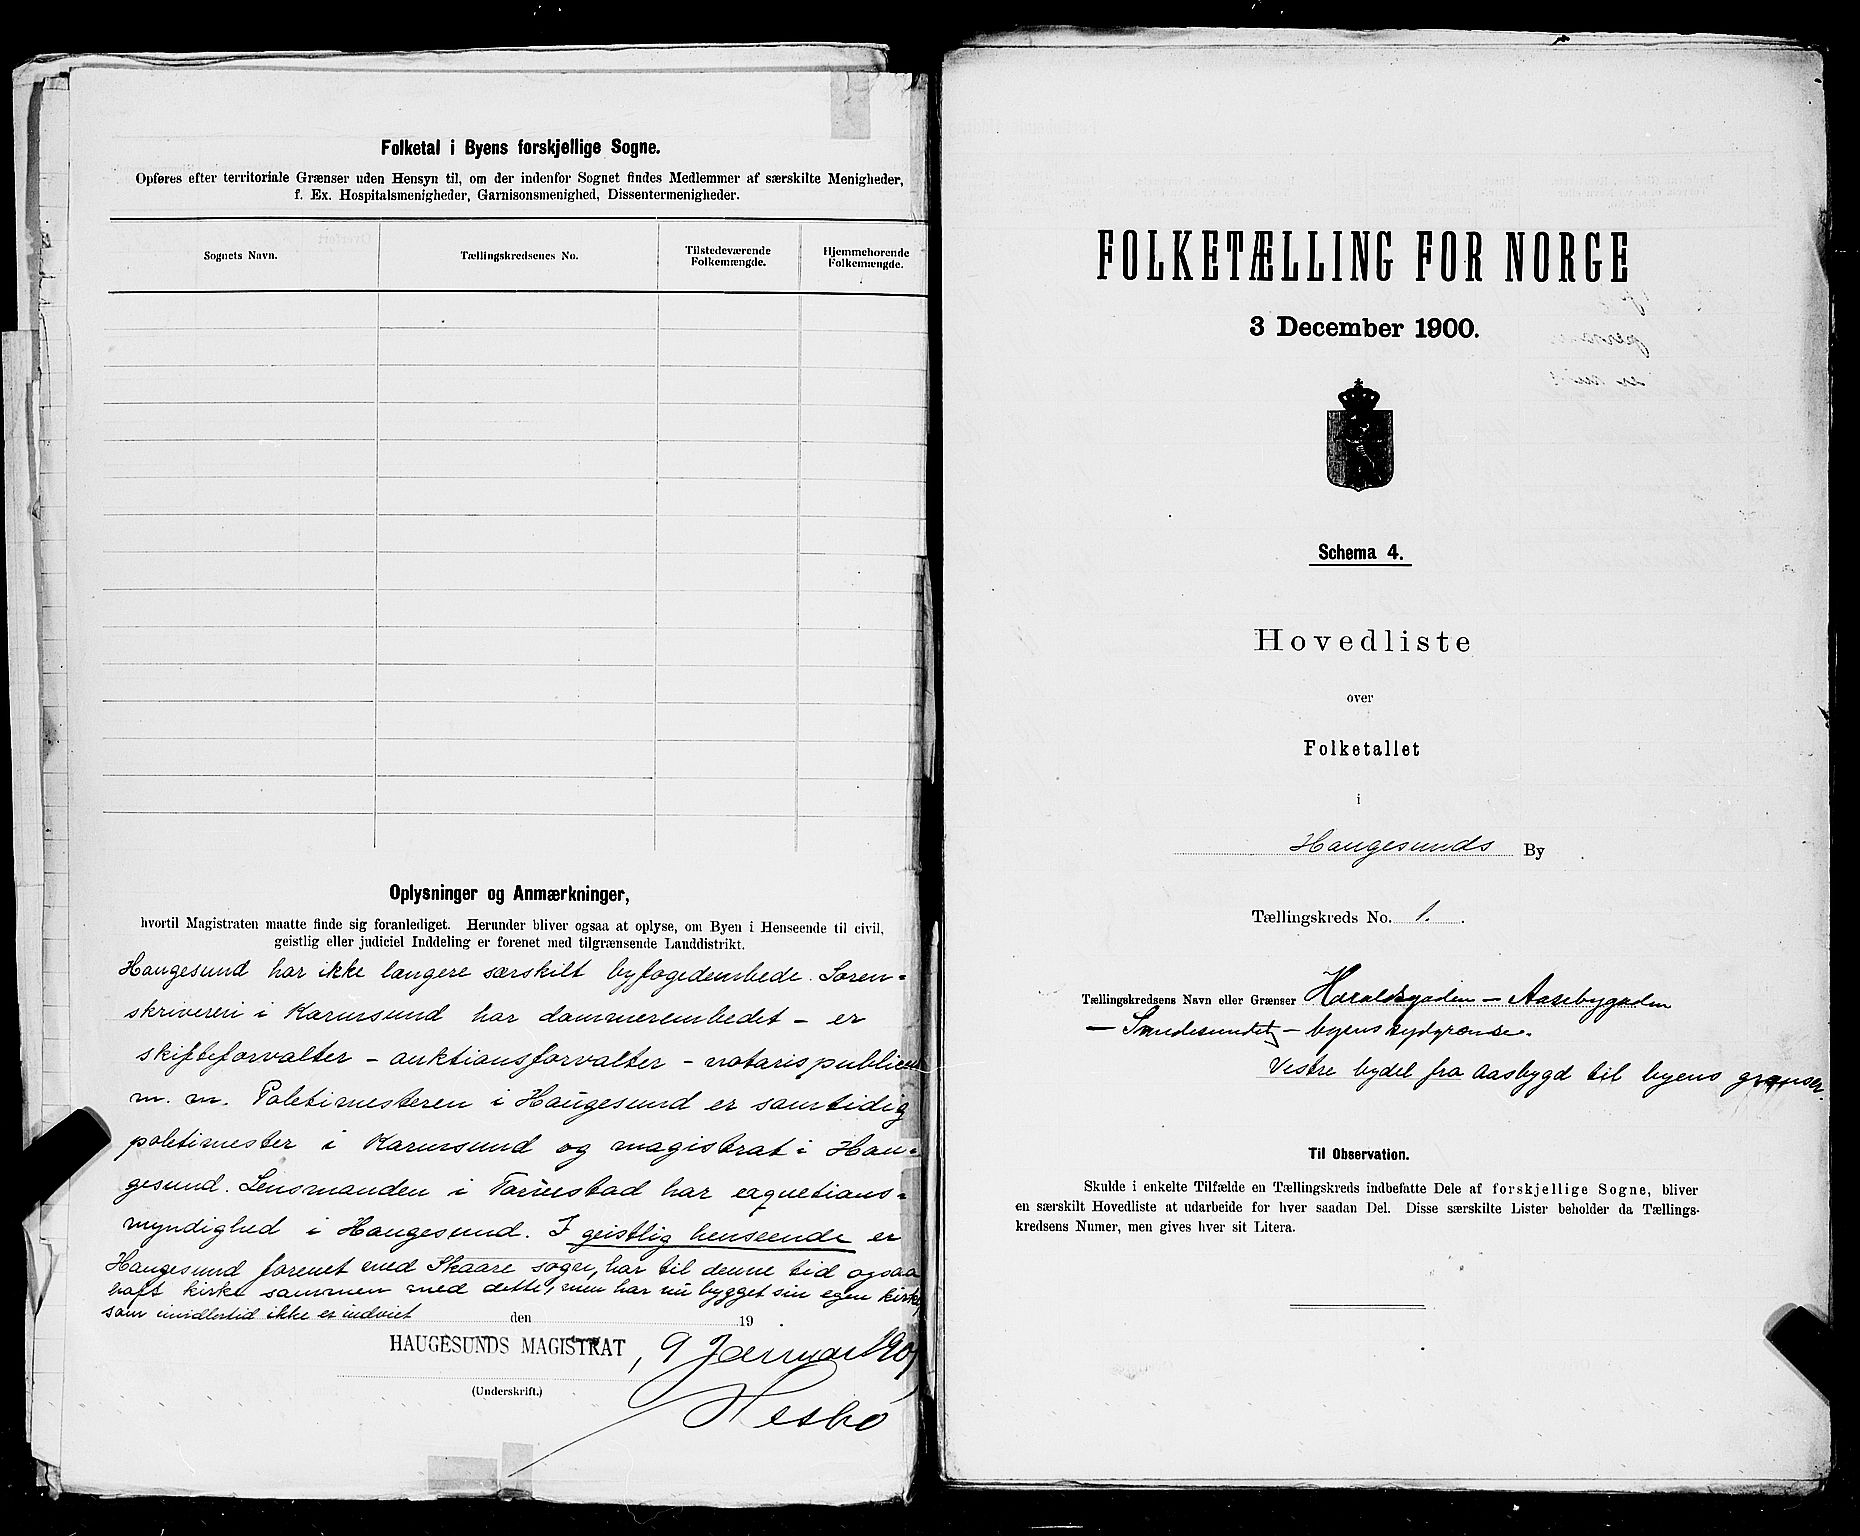 Folketal i Byens forskjellige Sogne.
Opføres efter territoriale Grænser uden Hensyn til, om der indenfor Sognet findes Medlemmer af særskilte Menigheder,
f. Ex. Hospitalsmenigheder, Garnisonsmenighed, Dissentermenigheder.
Sognets Navn.
Tællingskredsenes No.
Tilstedeværende
Folkemængde.
Hjemmehørende
Folkemængde.
Oplysninger og Anmærkninger,
hvortil Magistraten maatte finde sig foranlediget. Herunder bliver ogsaa at oplyse, om Byen i Henseende til civil,
geistlig eller judiciel Inddeling er forenet med tilgrænsende Landdistrikt.
Haugesund har ikke længere særskilt byfogedembede. Soren-
skriveren i Karmsund har dommerembedet – er
skifteforvalter – auktionsforvalter – notaris publicus
m. m. Politimesteren i Haugesund er samtidig
politimester i Karmsund og magistrat i Hau-
gesund. Lensmanden i Torvestad har exquetions-
myndighed i Haugesund. I geistlig henseende er
Haugesund forenet med Skaare sogn, har til denne tid ogsaa
haft kirke sammen med dette, men har nu bygget sin egen kirke,
som imidlertid ikke er indviet
den 19
HAUGESUNDS MAGISTRAT, 9 Januar 1901
(Underskrift.)
FOLKETÆLLING FOR NORGE
3 December 1900.
Schema 4.
Hovedliste
over
Folketallet
i
Haugesunds By
Tællingskreds No. 1.
Tællingskredsens Navn eller Grænser Haraldsgaden – Aasebygaden
– Smedesundet – byens sydgrænse.
Vestre bydel fra Aasbygd til byens grænser.
Til Observation.
Skulde i enkelte Tilfælde en Tællingskreds indbefatte Dele af forskjellige Sogne, bliver
en særskilt Hovedliste at udarbeide for hver saadan Del. Disse særskilte Lister beholder da Tællings-
kredsens Numer, men gives hver sit Litera.